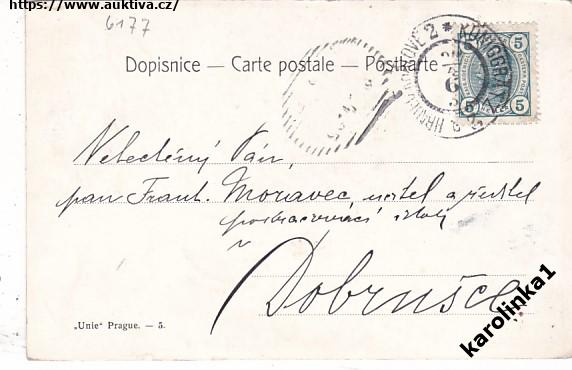 https://www.auktiva.cz/
6177
Dopisnice — Carte postale — Postkarte
KÖNIGGRÄTZ 2 * HRADEC KRÁLOVÉ 2 *
5 5
5 5
Veleděný Pán,
pan Frant. Moravec, učitel a ředitel
pokračovací školy
v
Dobrušce
„Unie" Prague. — 5.
karolinka1